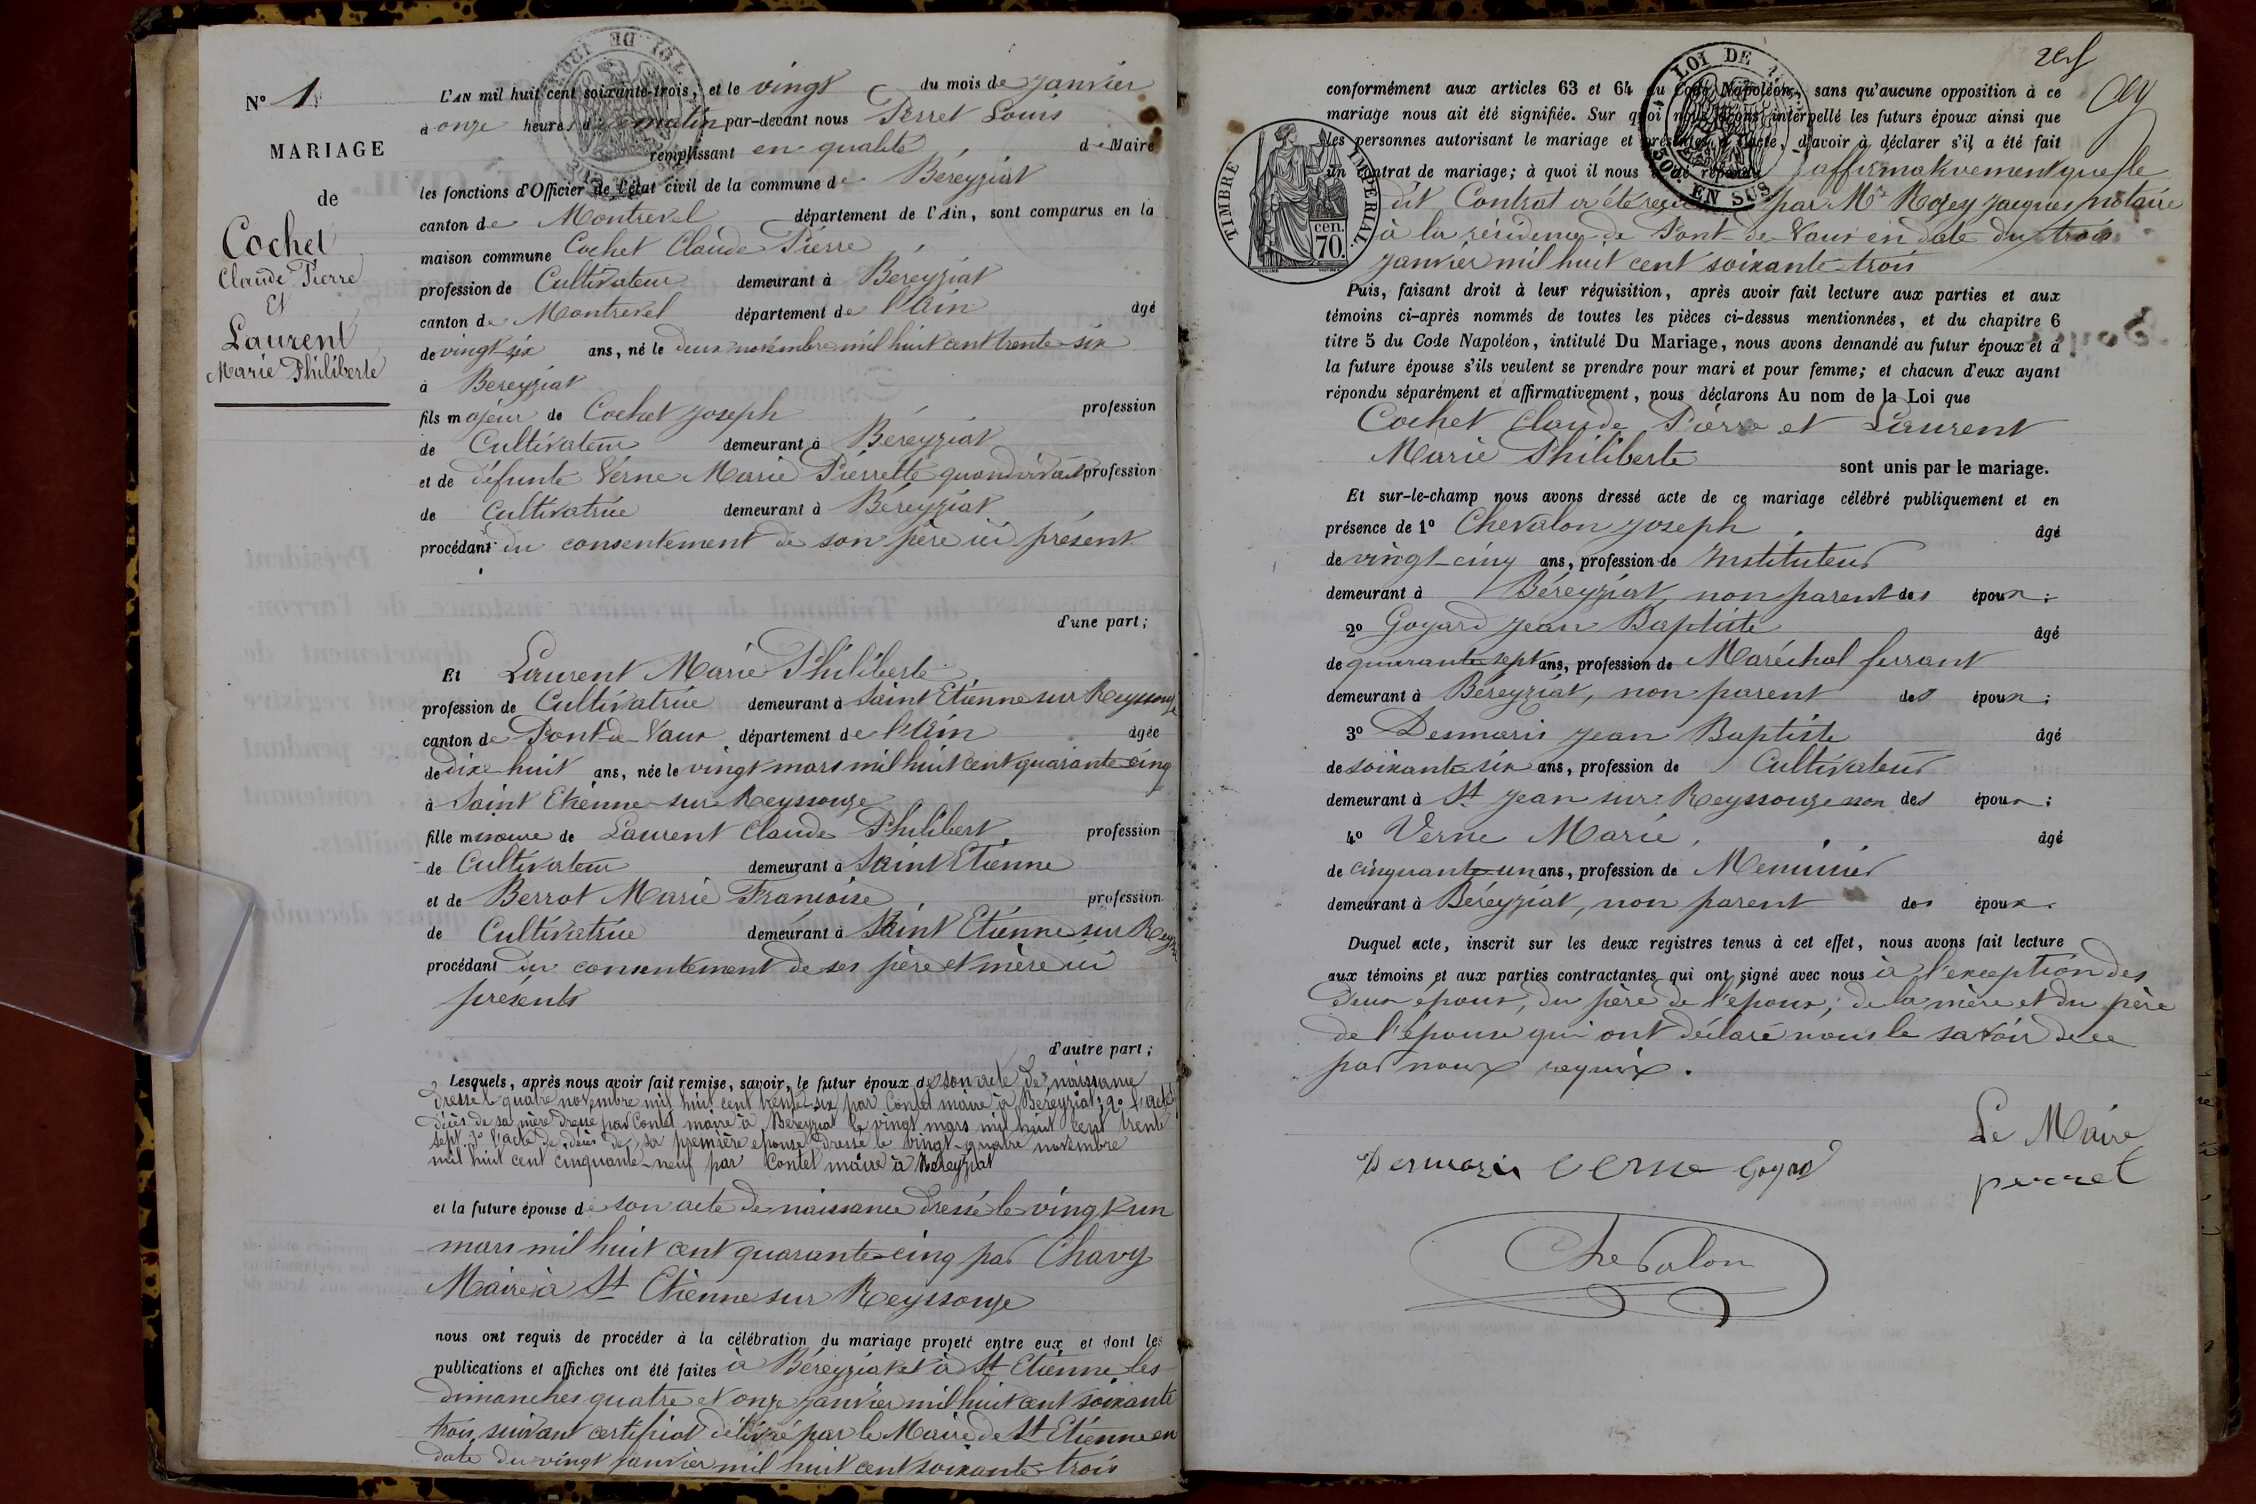 N° 1
MARIAGE
de
Cochet
Claude Pierre
Et
Laurent
Marie Philiberte
L'AN mil huit cent soixante-trois, et le vingt du mois de Janvier
à onze heures du matin par-devant nous Perret Louis
remplissant en qualité de Maire
les fonctions d'Officier de l'état civil de la commune de Béreyziat
canton de Montrevel département de l'Ain, sont comparus en la
maison commune Cochet Claude Pierre
profession de Cultivateur demeurant à Béreyziat
canton de Montrevel département de l'Ain âgé
de vingt-six ans, né le deux novembre mil huit cent trente-six
à Bereyziat
fils majeur de Cochet Joseph profession
de Cultivateur demeurant à Béreyziat
et de défunte Verne Marie Pierrette quand vivait profession
de Cultivatrice demeurant à Béreyziat
procédant du consentement de son père ici présent
d'une part;
Et Laurent Marie Philiberte
profession de Cultivatrice demeurant à Saint Etienne sur Reyssouze
canton de Pont-de-Vaux département de l'Ain âgée
de dix-huit ans, née le vingt mars mil huit cent quarante-cinq
à Saint Etienne-sur Reyssouze
fille mineure de Laurent Claude Philibert profession
de Cultivateur demeurant à Saint Etienne
et de Berrot Marie Francoise profession
de Cultivatrice demeurant à Saint Etienne sur Reyss
procédant du consentement de ses père et mère ici
présents
d'autre part;
Lesquels, après nous avoir fait remise, savoir, le futur époux de son acte de naissance
dressé le quatre novembre mil huit cent trente-six par Contet maire à Béreyziat; 2° l'acte
décès de sa mère dressé par Contet maire à Béreyziat le vingt mars mil huit cent trente
sept 3° l'acte de décès de sa première epouse dressé le vingt-quatre novembre
mil huit cent cinquante-neuf par Contet maire à Béreyziat
et la future épouse de son acte de naissance dressé le vingt un
mars mil huit cent quarante-cinq par Chavy
Maire à St Etienne sur Reyssouze
nous ont requis de procéder à la célébration du mariage projeté entre eux et dont les
publications et affiches ont été faites à Béreyziat et à St Etienne les
dimanches quatre et onze janvier mil huit cent soixante
trois, suivant certificat délivré par le Maire de St Etienne en
date du vingt janvier mil huit cent soixante-trois
conformément aux articles 63 et 64 du Code Napoléon, sans qu'aucune opposition à ce
mariage nous ait été signifiée. Sur quoi nous avons interpellé les futurs époux ainsi que
les personnes autorisant le mariage et présentes à l'acte, d'avoir à déclarer s'il a été fait
un contrat de mariage; à quoi il nous a été répondu affirmativement que le
dit Contrat a été reçu par Me Rozey Jacques notaire
à la résidence de Pont-de-Vaux en date du trois
janvier mil huit cent soixante-trois
Puis, faisant droit à leur réquisition, après avoir fait lecture aux parties et aux
témoins ci-après nommés de toutes les pièces ci-dessus mentionnées, et du chapitre 6
titre 5 du Code Napoléon, intitulé Du Mariage, nous avons demandé au futur époux et à
la future épouse s'ils veulent se prendre pour mari et pour femme; et chacun d'eux ayant
répondu séparément et affirmativement, nous déclarons Au nom de la Loi que
Cochet Claude Pierre et Laurent
Marie Philiberte sont unis par le mariage.
Et sur-le-champ nous avons dressé acte de ce mariage célébré publiquement et en
présence de 1° Chevalon Joseph âgé
de vingt-cinq ans, profession de Instituteur
demeurant à Béreyziat, non parent des époux;
2° Goyard Jean Baptiste âgé
de quarante-sept ans, profession de Maréchal ferrant
demeurant à Béreyziat, non parent des époux;
3° Desmaris Jean Baptiste âgé
de soixante-six ans, profession de Cultivateur
demeurant à St Jean sur Reyssouze non des époux;
4° Verne Marie, âgé
de cinquante-un ans, profession de Menuisier
demeurant à Béreyziat, non parent des époux.
Duquel acte, inscrit sur les deux registres tenus à cet effet, nous avons fait lecture
aux témoins et aux parties contractantes qui ont signé avec nous à l'exception des
deux époux, du père de l'époux; de la mère et du père
de l'épouse qui ont déclaré nous le savoir de ce
par nous requis.
Le Maire
Desmaris Verne Goyard perret
Chevalon
LOI DE
50c EN SUS
TIMBRE IMPÉRIAL.
cen.
70.